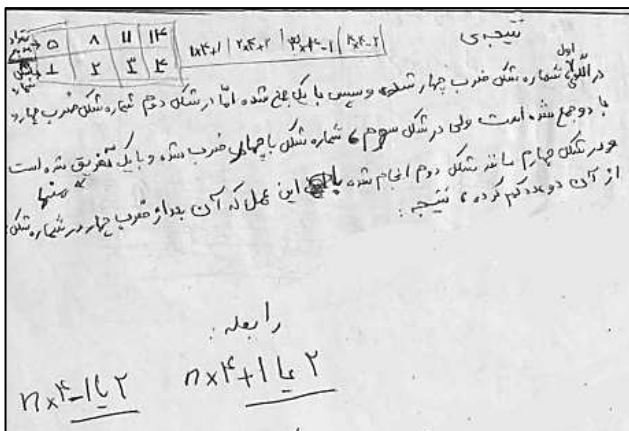 نتیجه‌ی
تعداد ۵ ۸ ۱۱ ۱۴
شماره شکل ۱ ۲ ۳ ۴
۱×۴+۱ | ۲×۴+۲ | ۳×۴-۱ | ۴×۴-۲
در الگوی اول شماره شکل ضرب چهار شده و سپس با یک جمع شده اما در شکل دوم شماره شکل ضرب چهار و
با دو جمع شده است ولی در شکل سوم، شماره شکل با چهار ضرب شده و با یک تفریق شده است
و در شکل چهارم مانند شکل دوم انجام شده با این عمل که آن بعد از ضرب چهار در شماره شکل
از آن دو عدد کم کرده، نتیجه:
رابطه:
n×۴+۱ یا ۲
n×۴-۱ یا ۲